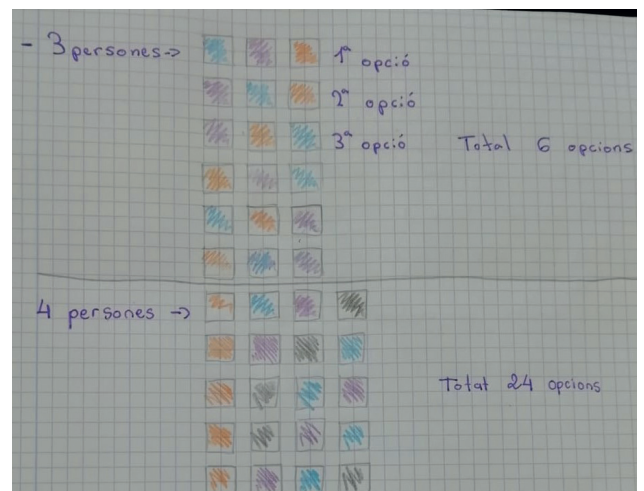 - 3 persones -> 1ª opció
2ª opció
3ª opció Total 6 opcions
4 persones ->
Total 24 opcions